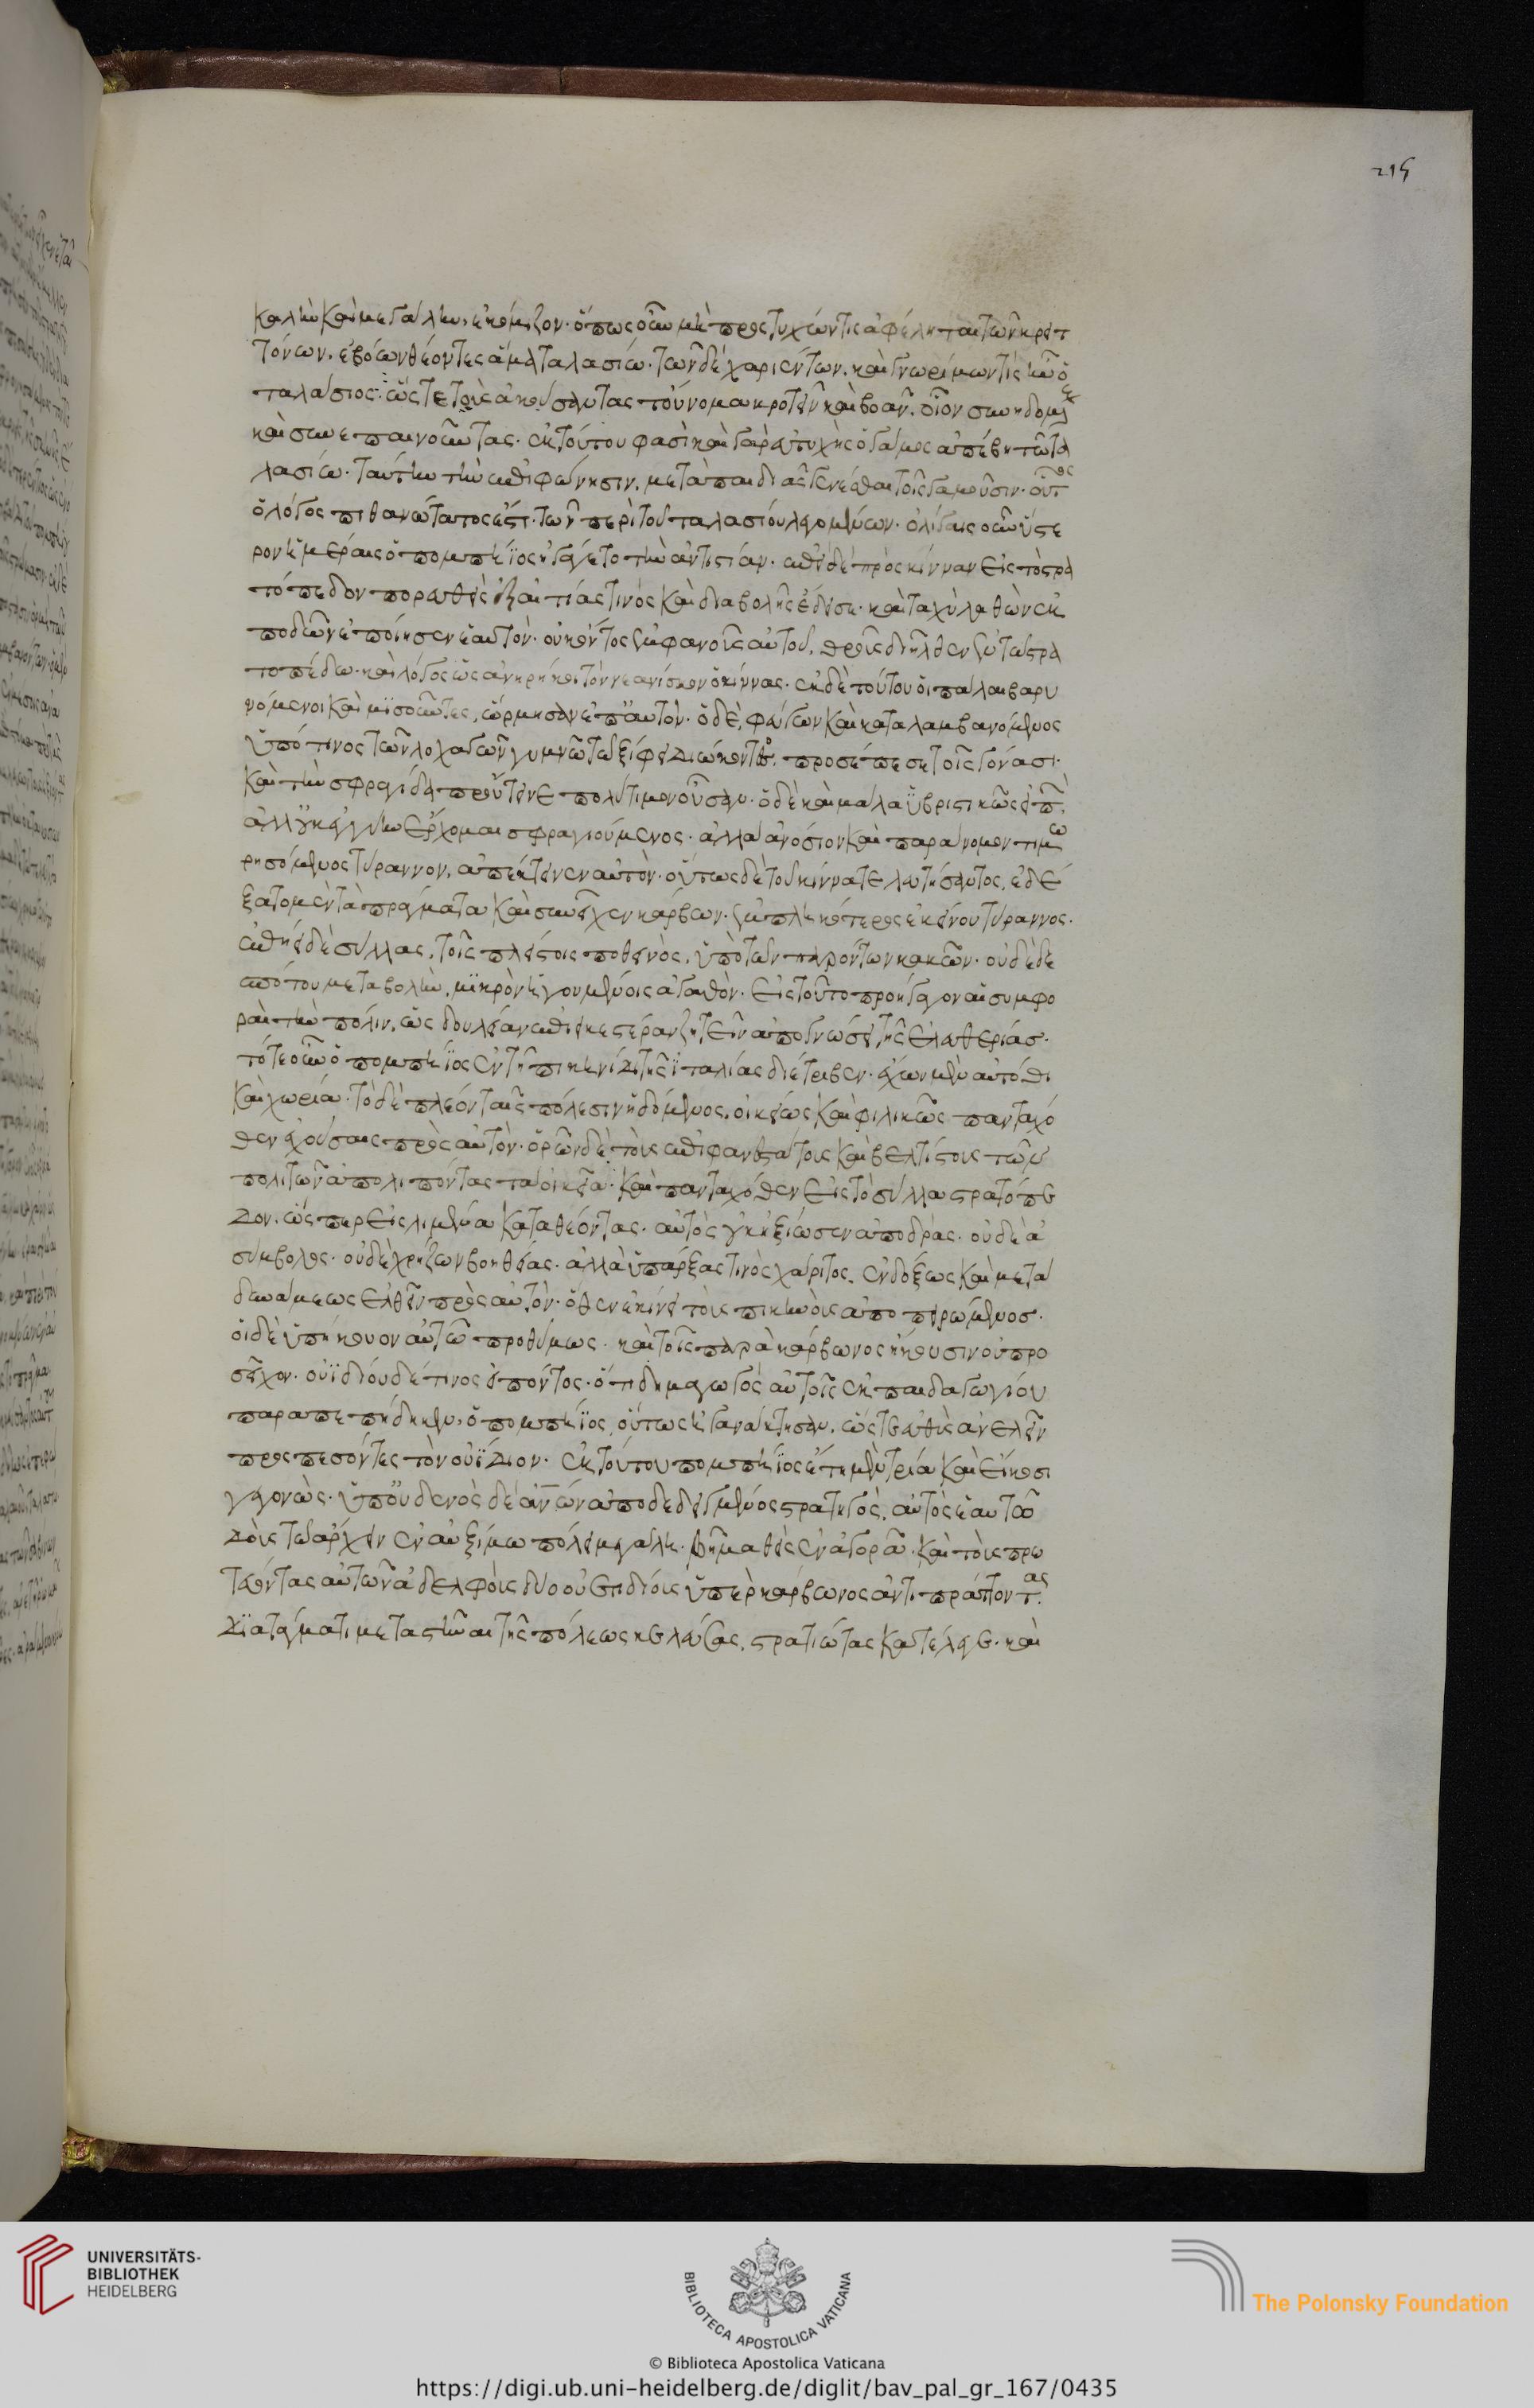 215
καλὴν καὶ μεγάλην, ἐκόμιζον· ὅπως οὖν μὴ προστυχών τις ἀφέληται τῶν κρειτ
τόνων, ἐβόων θέοντες ἅμα ταλασίω· τῶν δὲ χαριέντων καὶ γνωρίμων τίς ἦν ὁ
ταλάσιος· ὥστε τοὺς ἀκούσαντας τοὔνομα κροτεῖν καὶ βοᾶν, οἷον συνηδομέν
καὶ συνεπαινοῦντας· ἐκ τούτου φασὶ καὶ γὰρ εὐτυχὴς ὁ γάμος ἀπέβη τῶ τα
λασίω· ταύτην τὴν ἐπιφώνησιν, μετὰ παιδιᾶς γενέσθαι τοῖς γαμοῦσιν· οὗτος
ὁ λόγος πιθανώτατός ἐστι τῶν περὶ τοῦ ταλασίου λεγομένων· ὀλίγαις οὖν ὕστε
ρον ἡμέραις ὁ πομπήϊος ἠγάγετο τὴν ἀντιστίαν· ἐπεὶ δὲ πρὸς κίνναν εἰς τὸ στρα
τόπεδον πορευθεὶς ἐξ αἰτίας τινὸς καὶ διαβολῆς ἔδεισε· καὶ ταχὺ λαθὼν ἐκ
ποδῶν ἐποίησεν ἑαυτόν· οὐκ ὄντος ἐμφανοῖς αὐτοῦ, θροῦς διῆλθεν ἐν τῶ στρα
τοπέδω· καὶ λόγος ὡς ἀνηρήκοι τὸν νεανίσκον ὁ κίννας· ἐκ δὲ τούτου οἱ πάλαι βαρυ
νόμενοι καὶ μισοῦντες, ὥρμησαν ἐπ' αὐτόν· ὁ δὲ, φεύγων καὶ καταλαμβανόμενος
ὑπό τινος τῶν λοχαγῶν γυμνῶ τῶ ξίφει διώκοντος, προσέπεσε τοῖς γόνασι·
καὶ τὴν σφραγίδα προὔτεινε πολύτιμον οὖσαν· ὁ δὲ καὶ μάλα ὑβριστικῶς εἰπ.
ἀλλ' οὐκ ἐγγύην ἔρχομαι σφραγιούμενος· ἀλλὰ ἀνόσιον καὶ παράνομον τιμω
ρησόμενος τύραννον, ἀπέκτεινεν αὐτόν· οὕτως δὲ τοῦ κίννα τελευτήσαντος, ἐδέ
ξατο μὲν τὰ πράγματα καὶ συνεῖχεν κάρβων· ἐμπληκτότερος ἐκείνου τύραννος·
ἐπήει δὲ σύλλας, τοῖς πλείστοις ποθεινὸς, ὑπὸ τῶν παρόντων κακῶν· οὐδὲ δε
σπότου μεταβολὴν, μικρὸν ἡγουμένοις ἀγαθόν· εἰς τοῦτο προήγαγον αἱ συμφο
ραὶ τὴν πόλιν, ὡς δουλείαν ἐπιεικεστέραν ζητεῖν ἀπογνώσει τῆς ἐλευθερίας·
τότε οὖν ὁ πομπήϊος ἐν τῆ πικηνίδι τῆς ἰταλίας διέτριβεν· ἔχων μὲν αὐτόθι
καὶ χωρία· τὸ δὲ πλέον ταῖς πόλεσιν ἡδόμενος, οἰκείως καὶ φιλικῶς πανταχό
θεν ἐχούσαις πρὸς αὐτόν· ὁρῶν δὲ τοὺς ἐπιφανεστάτους καὶ βελτίστους τῶν
πολιτῶν ἀπολιπόντας τὰ οἰκεῖα· καὶ πανταχόθεν εἰς τὸ σύλλα στρατόπε
δον, ὥσπερ εἰς λιμένα καταθέοντας· αὐτὸς οὐκ ἠξίωσεν ἀποδρὰς· οὐδὲ ἀ
σύμβολος· οὐδὲ χρῄζων βοηθείας· ἀλλὰ ὑπάρξας τινὸς χάριτος, ἐνδόξως καὶ μετὰ
δυνάμεως ἐλθεῖν πρὸς αὐτόν· ὅθεν ἐκίνει τοὺς πικηνοὺς ἀποπειρώμενος·
οἱ δὲ ὑπήκουον αὐτῶ προθύμως· καὶ τοῖς παρὰ κάρβωνος ἥκουσιν οὐ προ
σεῖχον· οὐϊδίου δέ τινος εἰπόντος· ὅτι δημαγωγὸς αὐτοῖς ἐκ παιδαγωγίου
παραπεπήδηκεν, ὁ πομπήϊος, οὕτως ἠγανάκτησαν, ὥστε εὐθὺς ἀνελεῖν
προσπεσόντες τὸν οὐΐδιον· ἐκ τούτου πομπήϊος ἔτη μὲν τρία καὶ εἴκοσι
γεγονὼς· ὑπ' οὐδενὸς δὲ ἀν̅ων ἀποδεδειγμένος στρατηγὸς, αὐτὸς ἑαυτῶ
δοὺς τὸ ἄρχειν ἐν αὐξίμω πόλει μεγάλη, βῆμα θεὶς ἐν ἀγορᾶ· καὶ τοὺς πρω
τεύοντας αὐτῶν ἀδελφοὺς δύο οὐεντιδίους ὑπὲρ κάρβωνος ἀντιπράττοντας
διατάγματι μεταστῆναι τῆς πόλεως κελεύσας, στρατιώτας κατέλεγε· καὶ
UNIVERSITÄTS-
BIBLIOTHEK
HEIDELBERG
BIBLIOTECA APOSTOLICA VATICANA
The Polonsky Foundation
© Biblioteca Apostolica Vaticana
https://digi.ub.uni-heidelberg.de/diglit/bav_pal_gr_167/0435